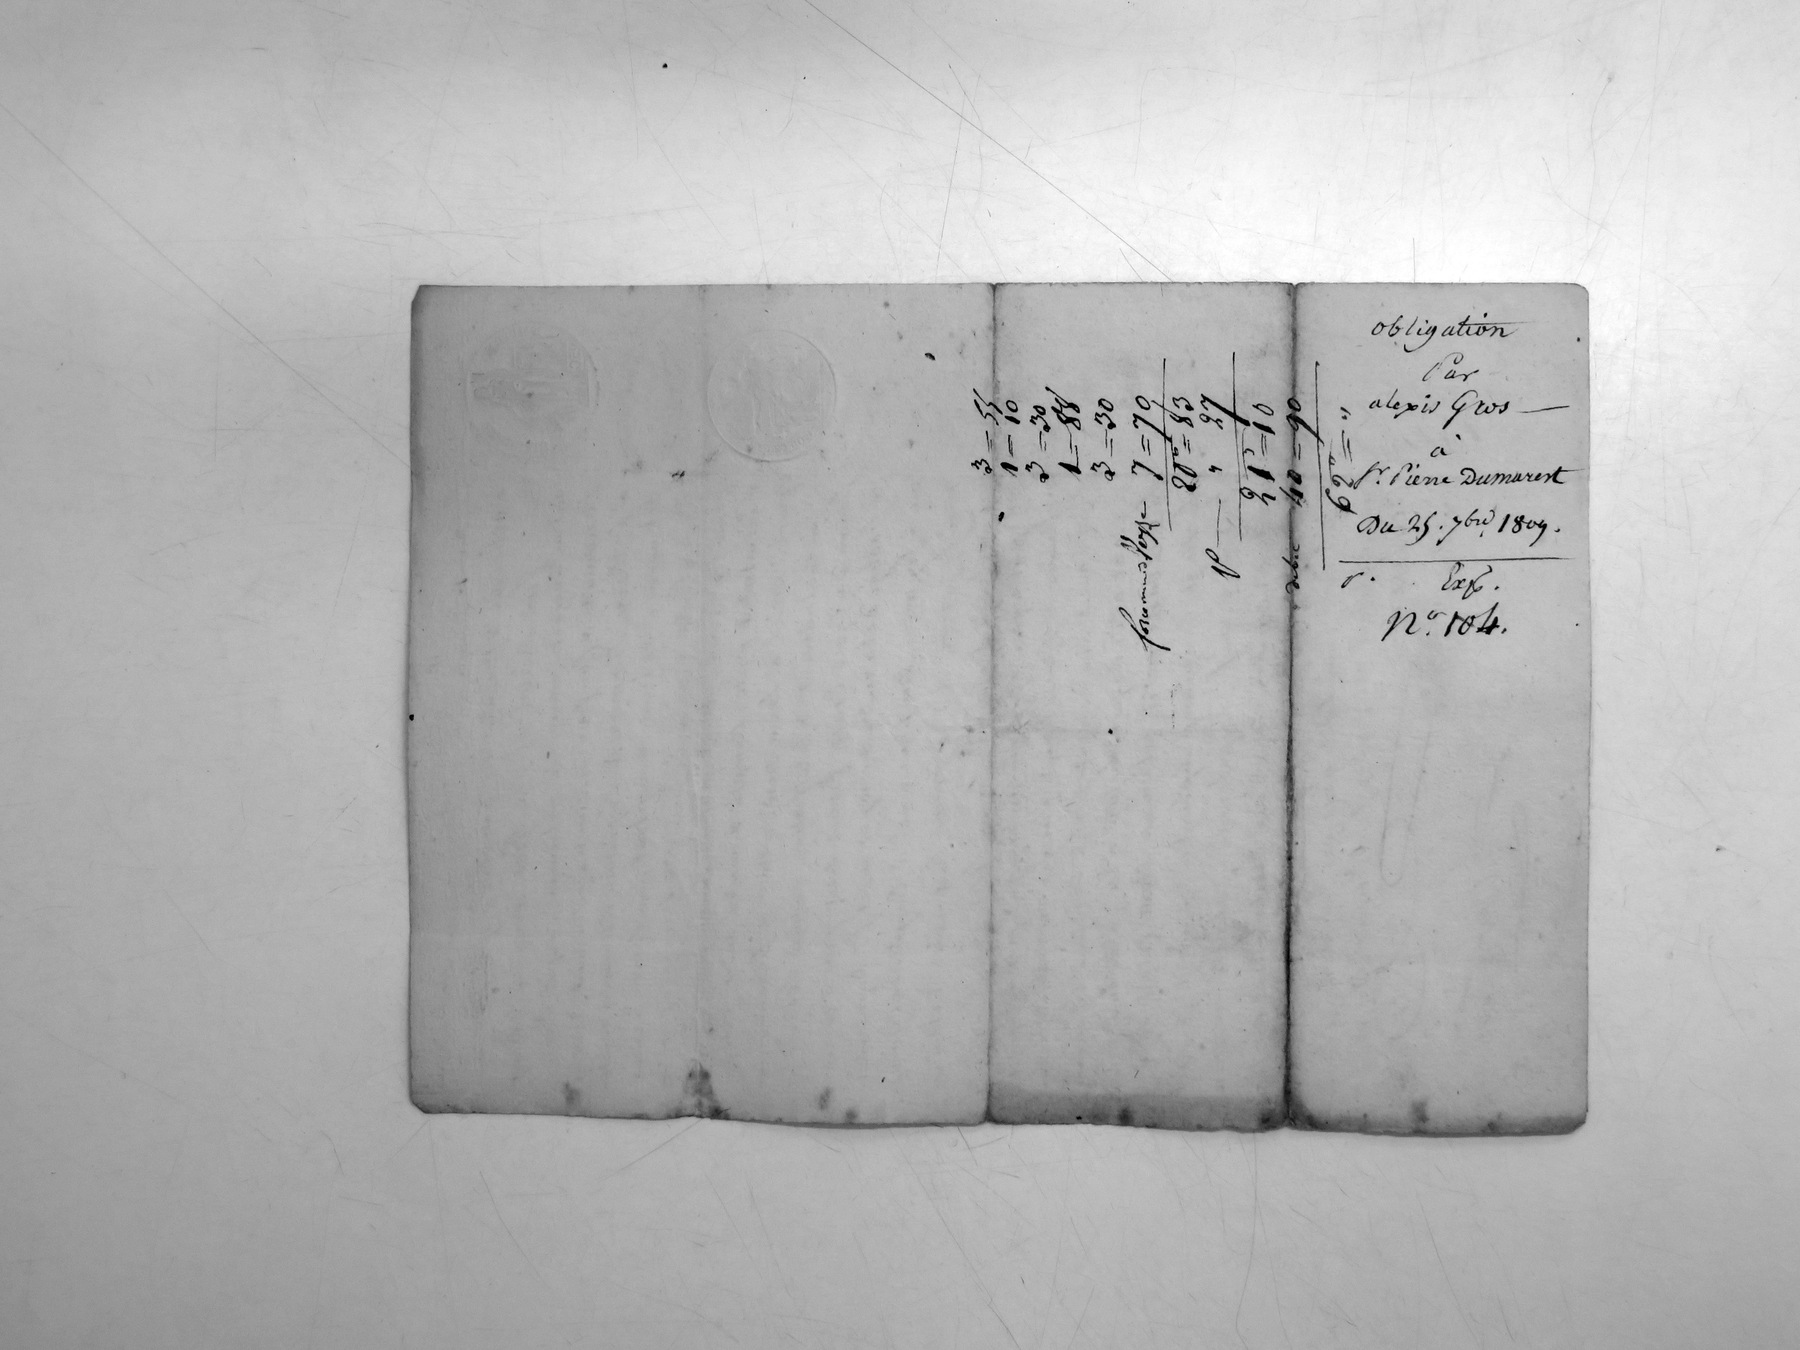 obligation
Par
alexis Gros
à
Sr. Pierre Dumarest
Du 25. 7bre 1809.
Exp.
No. 104.
3 = 55
1 = 10
3 = 30
1 = 88
3 = 30
7 = 70
20 = 83
" 27
21 = 10
40 = 90
62 = "